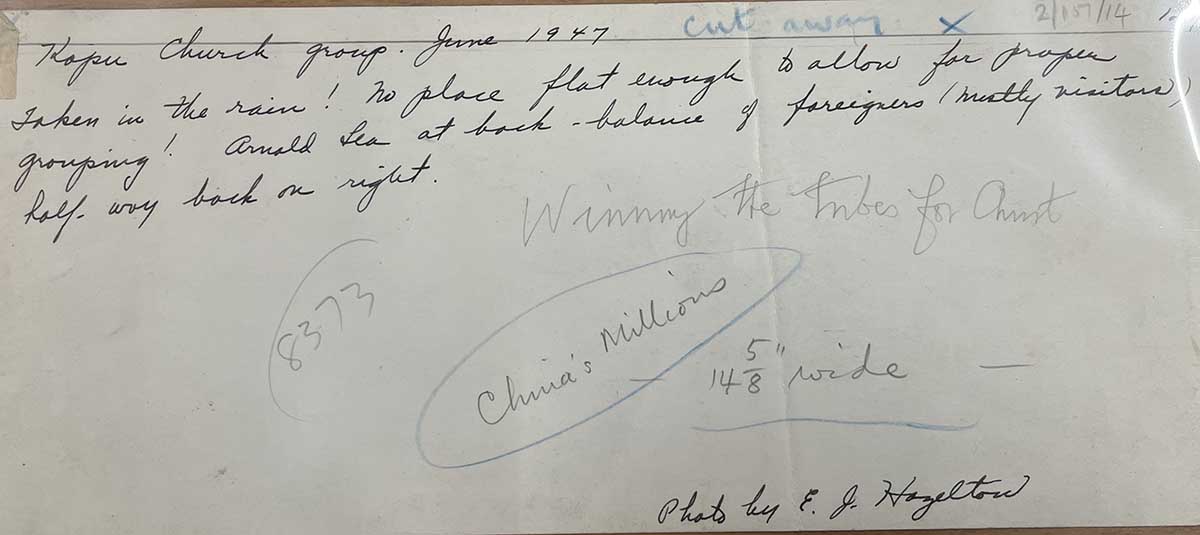 Kopu Church group. June 1947 cut away X 2/157/14
Taken in the rain! No place flat enough to allow for proper
grouping! Arnold Lea at back - balance of foreigners (mostly visitors)
half-way back on right.
Winning the tribes for Christ
8373
China's Millions
— 14 5/8" wide —
Photo by E. J. Hazelton